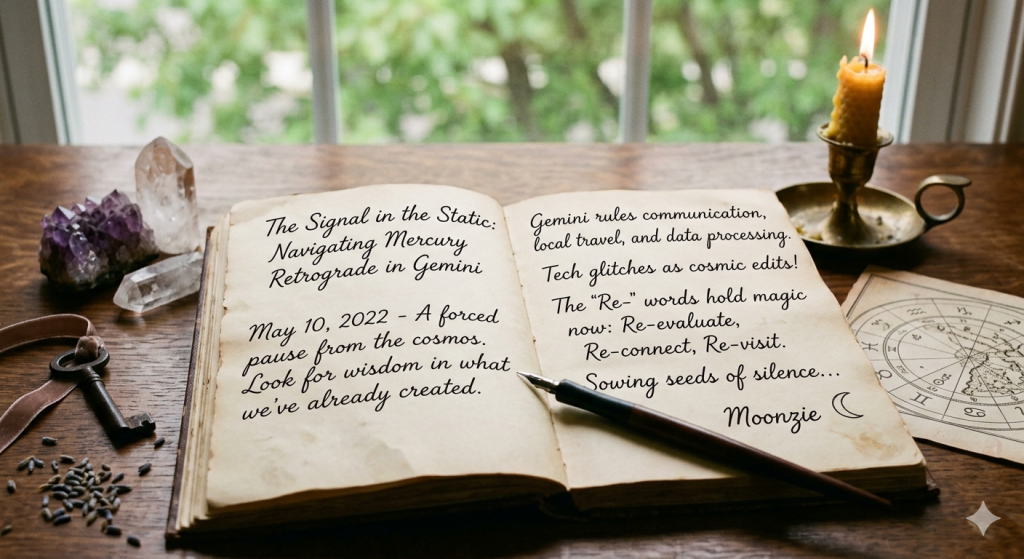 The Signal in the Static:
Navigating Mercury
Retrograde in Gemini
May 10, 2022 – A forced
pause from the cosmos.
Look for wisdom in what
we've already created.
Gemini rules communication,
local travel, and data processing.
Tech glitches as cosmic edits!
The "Re-" words hold magic
now: Re-evaluate,
Re-connect, Re-visit.
Sowing seeds of silence...
Moonzie